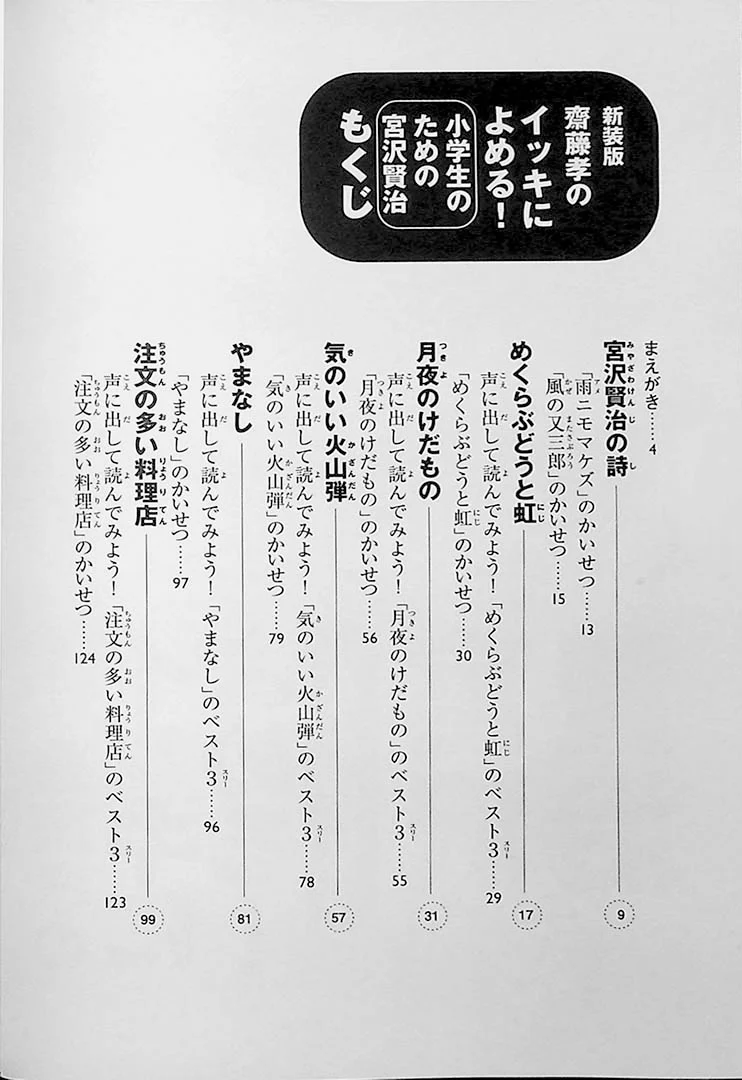 新装版
齋藤孝の
イッキに
よめる!
小学生の
ための
宮沢賢治
もくじ
まえがき……4
宮沢賢治の詩 9
「雨ニモマケズ」のかいせつ……13
「風の又三郎」のかいせつ……15
めくらぶどうと虹 17
声に出して読んでみよう!「めくらぶどうと虹」のベスト3……29
「めくらぶどうと虹」のかいせつ……30
月夜のけだもの 31
声に出して読んでみよう!「月夜のけだもの」のベスト3……55
「月夜のけだもの」のかいせつ……56
気のいい火山弾 57
声に出して読んでみよう!「気のいい火山弾」のベスト3……78
「気のいい火山弾」のかいせつ……79
やまなし 81
声に出して読んでみよう!「やまなし」のベスト3……96
「やまなし」のかいせつ……97
注文の多い料理店 99
声に出して読んでみよう!「注文の多い料理店」のベスト3……123
「注文の多い料理店」のかいせつ……124